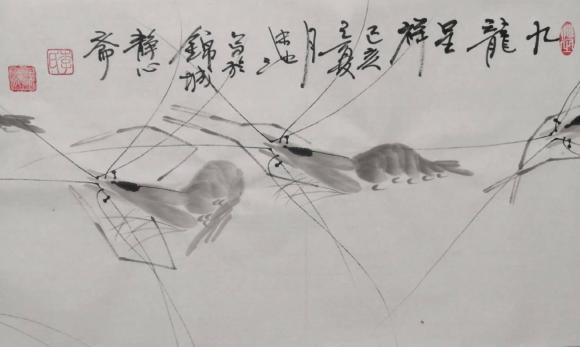 九
龍
呈
祥
己亥
夏
月
寫於
錦城
靜心
齋